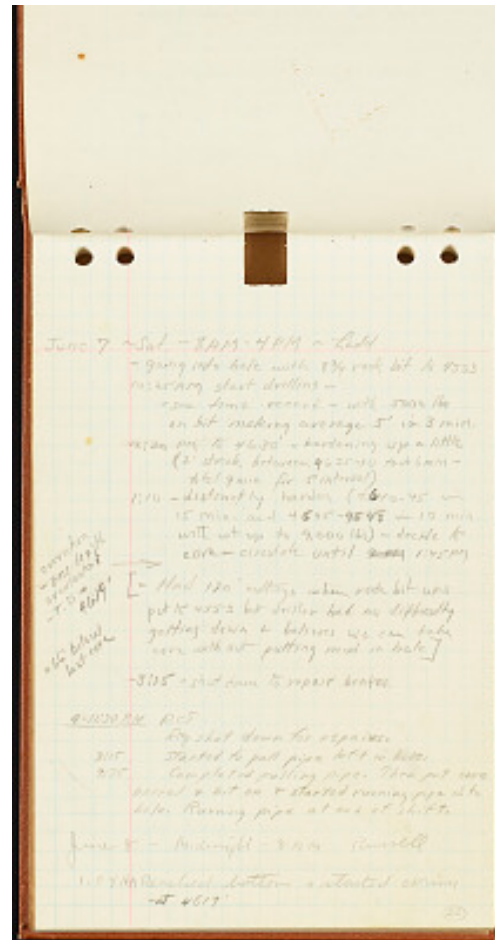 June 7 - Sat - 8 AM - 4 PM - Ladd
- going into hole with 8¾ rock bit to 4553
start drilling -
- same time record - with 5000 lbs
on bit making average 5' in 3 min.
to 4630' - hardening up a little
(2' streak between 4625-30 took 6 min -
total 9 min for 5' interval)
1:10 - distinctly harder (
15 min. and 10 min
with wt up to 9,000 lbs) - decide to
core - circulate until 1:45 PM
correction
- one length
- T.D. =
4619'
[- Had 120' cuttings when rock bit was
put to 4553 but driller had no difficulty
getting down & believes we can take
core without putting mud in hole]
before
last core
- 3:15 - shut down to repair brakes
4-11:30 P.M.
Rig shut down for repairs.
Started to pull pipe left in hole.
Completed pulling pipe. Then put core
barrel & bit on & started running pipe into
hole. Running pipe at end of shift.
June 8 - Midnight - 8 AM
Reached bottom & started coring
at 4619'